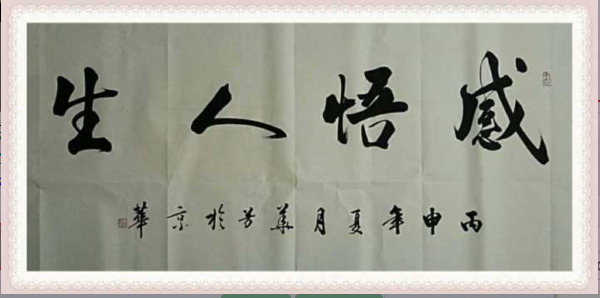 感悟人生
丙申年夏月芳於京華